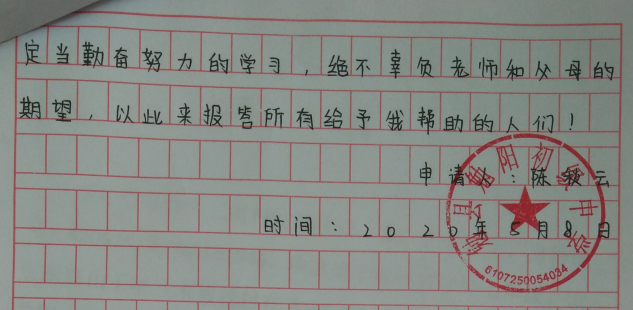 定当勤奋努力的学习，绝不辜负老师和父母的
期望，以此来报答所有给予我帮助的人们！
申请人：陈颖云
时间：2020年5月8日
县 阳初级中学
6107250054034